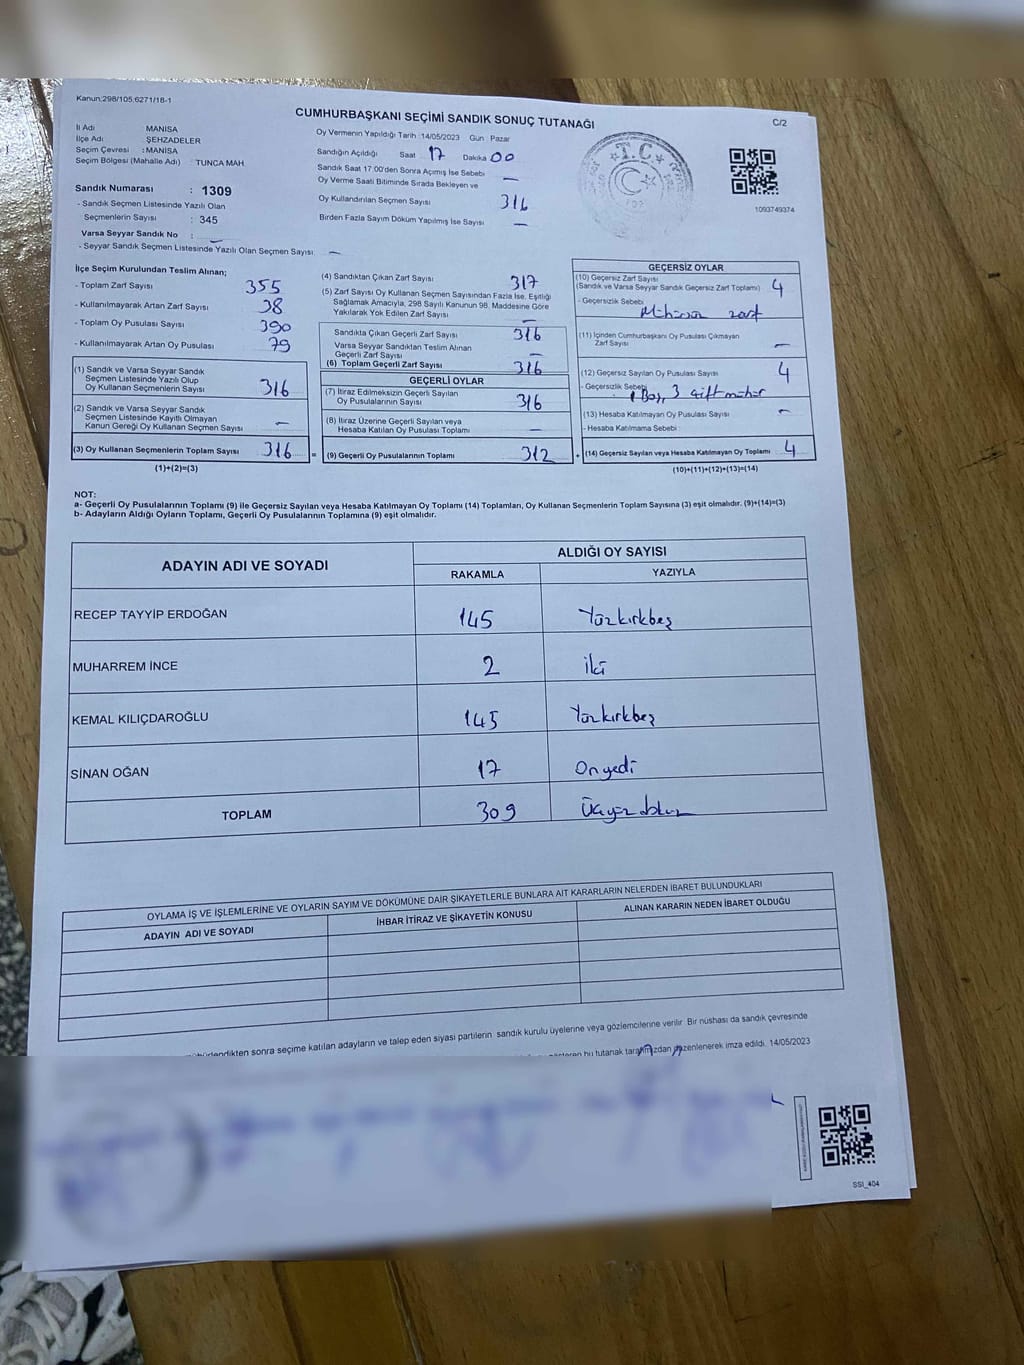 Kanun:298/105,6271/18-1
CUMHURBAŞKANI SEÇİMİ SANDIK SONUÇ TUTANAĞI
C/2
İl Adı MANİSA
İlçe Adı ŞEHZADELER
Seçim Çevresi : MANİSA
Seçim Bölgesi (Mahalle Adı) TUNCA MAH.
Sandık Numarası : 1309
- Sandık Seçmen Listesinde Yazılı Olan
Seçmenlerin Sayısı : 345
Varsa Seyyar Sandık No :
- Seyyar Sandık Seçmen Listesinde Yazılı Olan Seçmen Sayısı: —
Oy Vermenin Yapıldığı Tarih :14/05/2023 Gün : Pazar
Sandığın Açıldığı Saat 17 Dakika 00
Sandık Saat 17:00'den Sonra Açımış İse Sebebi —
Oy Verme Saati Bitiminde Sırada Bekleyen ve
Oy Kullandırılan Seçmen Sayısı 316
Birden Fazla Sayım Döküm Yapılmış İse Sayısı —
T.C
1093749374
İlçe Seçim Kurulundan Teslim Alınan;
- Toplam Zarf Sayısı 355
- Kullanılmayarak Artan Zarf Sayısı 38
- Toplam Oy Pusulası Sayısı 390
- Kullanılmayarak Artan Oy Pusulası 79
(1) Sandık ve Varsa Seyyar Sandık
Seçmen Listesinde Yazılı Olup
Oy Kullanan Seçmenlerin Sayısı 316
(2) Sandık ve Varsa Seyyar Sandık
Seçmen Listesinde Kayıtlı Olmayan
Kanun Gereği Oy Kullanan Seçmen Sayısı —
(3) Oy Kullanan Seçmenlerin Toplam Sayısı 316
(1)+(2)=(3)
(4) Sandıktan Çıkan Zarf Sayısı 317
(5) Zarf Sayısı Oy Kullanan Seçmen Sayısından Fazla İse, Eşitliği
Sağlamak Amacıyla, 298 Sayılı Kanunun 98. Maddesine Göre
Yakılarak Yok Edilen Zarf Sayısı —
Sandıkta Çıkan Geçerli Zarf Sayısı 316
Varsa Seyyar Sandıktan Teslim Alınan
Geçerli Zarf Sayısı —
(6) Toplam Geçerli Zarf Sayısı 316
GEÇERLİ OYLAR
(7) İtiraz Edilmeksizin Geçerli Sayılan
Oy Pusulalarının Sayısı 316
(8) İtiraz Üzerine Geçerli Sayılan veya
Hesaba Katılan Oy Pusulası Toplamı —
= (9) Geçerli Oy Pusulalarının Toplamı 312
GEÇERSİZ OYLAR
(10) Geçersiz Zarf Sayısı
(Sandık ve Varsa Seyyar Sandık Geçersiz Zarf Toplamı) 4
- Geçersizlik Sebebi
zarf
(11) İçinden Cumhurbaşkanı Oy Pusulası Çıkmayan
Zarf Sayısı —
(12) Geçersiz Sayılan Oy Pusulası Sayısı 4
- Geçersizlik Sebebi 1 Boş, 3 çift mühür
(13) Hesaba Katılmayan Oy Pusulası Sayısı —
- Hesaba Katılmama Sebebi
+ (14) Geçersiz Sayılan veya Hesaba Katılmayan Oy Toplamı 4
(10)+(11)+(12)+(13)=(14)
NOT:
a- Geçerli Oy Pusulalarının Toplamı (9) ile Geçersiz Sayılan veya Hesaba Katılmayan Oy Toplamı (14) Toplamları, Oy Kullanan Seçmenlerin Toplam Sayısına (3) eşit olmalıdır. (9)+(14)=(3)
b- Adayların Aldığı Oyların Toplamı, Geçerli Oy Pusulalarının Toplamına (9) eşit olmalıdır.
ADAYIN ADI VE SOYADI
ALDIĞI OY SAYISI
RAKAMLA YAZIYLA
RECEP TAYYİP ERDOĞAN 145 Yüzkırkbeş
MUHARREM İNCE 2 iki
KEMAL KILIÇDAROĞLU 145 Yüzkırkbeş
SİNAN OĞAN 17 Onyedi
TOPLAM 309 Üçyüzdokuz
OYLAMA İŞ VE İŞLEMLERİNE VE OYLARIN SAYIM VE DÖKÜMÜNE DAİR ŞİKAYETLERLE BUNLARA AİT KARARLARIN NELERDEN İBARET BULUNDUKLARI
ADAYIN ADI VE SOYADI İHBAR İTİRAZ VE ŞİKAYETİN KONUSU ALINAN KARARIN NEDEN İBARET OLDUĞU
sonra seçime katılan adayların ve talep eden siyasi partilerin sandık kurulu üyelerine veya gözlemcilerine verilir. Bir nüshası da sandık çevresinde
bu tutanak tarafımızdan düzenlenerek imza edildi. 14/05/2023
SSI_404